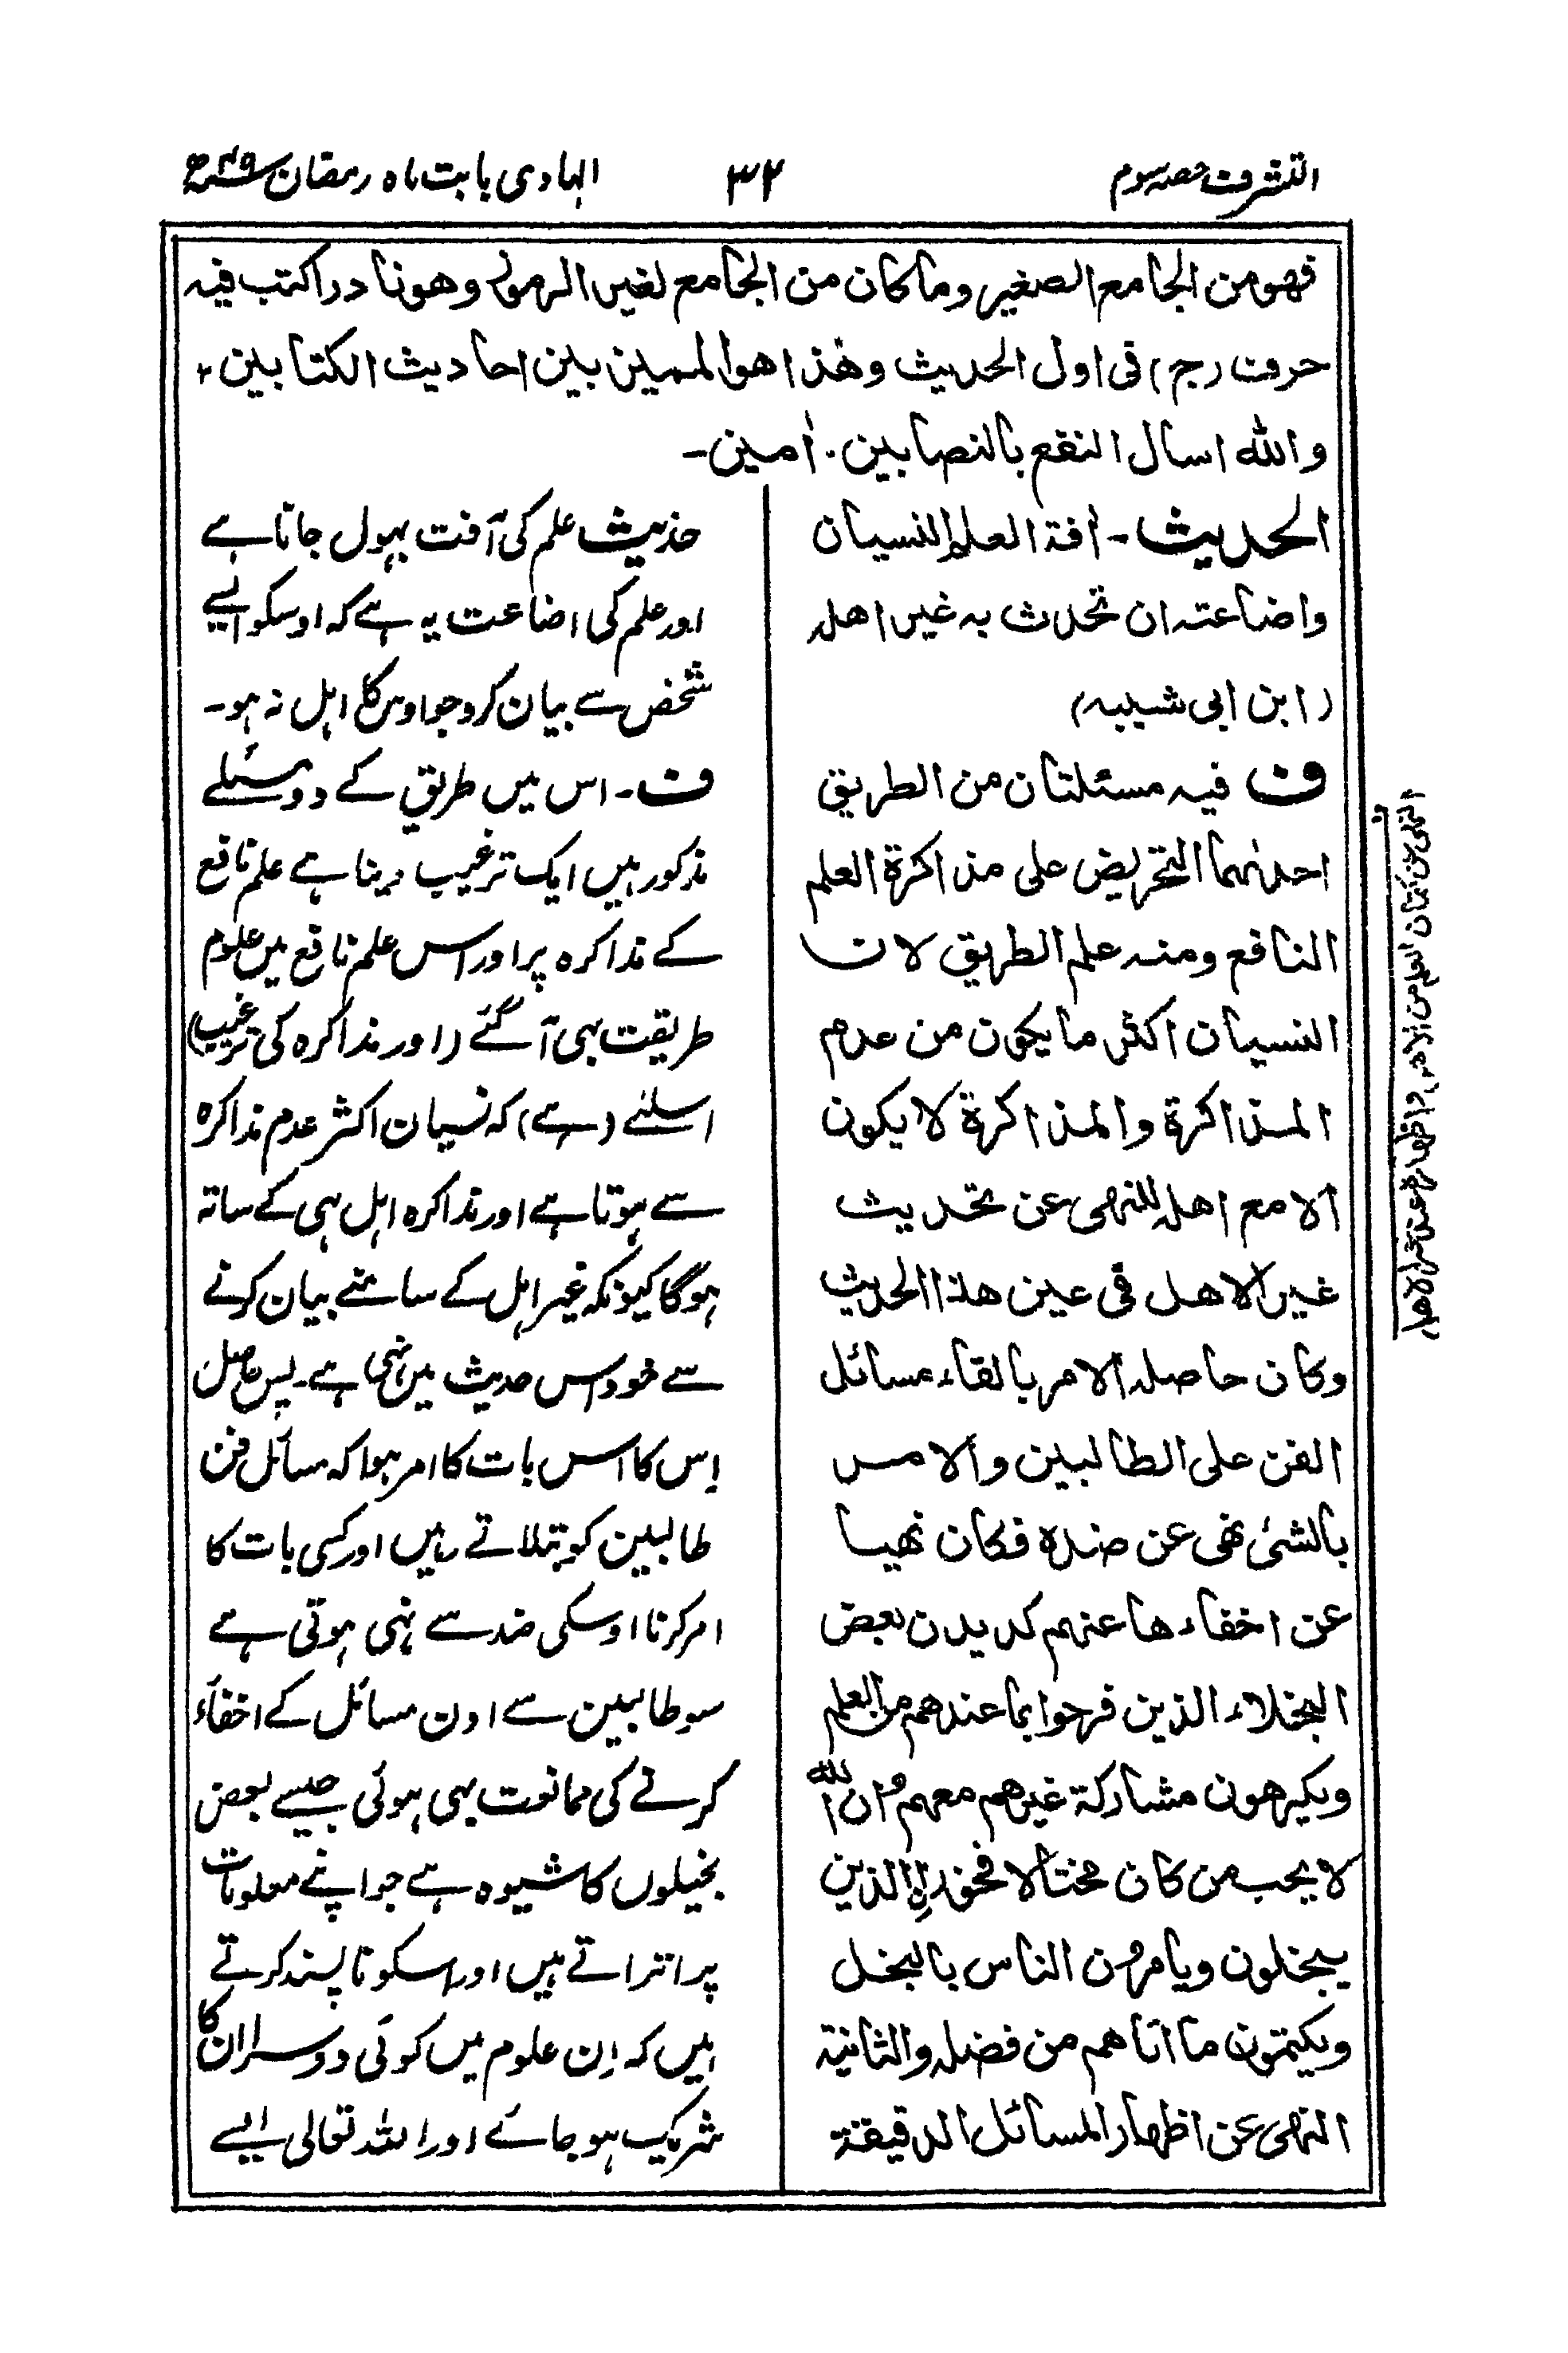 التشرف حصہ سوم
۳۲
الہادی بابت ماہ رمضان ۴۹ھ
فهو من الجامع الصغير وما كان من الجامع لغير الرموز وهو نادر اكتب فيه
حرف (ج) في اول الحديث وهذا هو المميز بين احاديث الكتابين ۲
والله اسال النفع بالنصابين. اٰمين-
الحديث- اٰفة العلم النسيان
واضاعته ان تحدث به غير اهله
(ابن ابی شیبہ)
ف فيه مسئلتان من الطريق
احدٰىهما التحريض على مذاكرة العلم
النافع ومنه علم الطريق لان
النسيان اكثر ما يكون من عدم
المذاكرة والمذاكرة لا يكون
الا مع اهله للنهى عن تحديث
غير الاهل فى عين هذا الحديث
وكان حاصله الامر بالقاء مسائل
الفن على الطالبين والامر
بالشئ نهى عن ضده فكان نهيا
عن اخفاءها عنهم كديدن بعض
البخلاء الذين فرحوا بما عندهم من العلم
ويكرهون مشاركة غيرهم معهم وان الله
لا يحب من كان مختالا فخورا الذين
يبخلون ويامرون الناس بالبخل
ويكتمون ما اتاهم من فضله والثانية
النهى عن اظهار المسائل الدقيقة
حدیث علم کی آفت بہول جانا ہے
اور علم کی اضاعت یہ ہے کہ اوسکو ایسے
شخص سے بیان کرو جو اوس کا اہل نہ ہو-
ف- اس میں طریق کے دو مسئلے
مذکور ہیں ایک ترغیب دینا ہے علم نافع
کے مذاکرہ پر اور اس علم نافع میں علوم
طریقت بہی آگئے (اور مذاکرہ کی ترغیب)
اسلئے (ہے) کہ نسیان اکثر عدم مذاکرہ
سے ہوتا ہے اور مذاکرہ اہل ہی کے ساتہ
ہوگا کیونکہ غیر اہل کے سامنے بیان کرنے
سے خود اس حدیث میں نہی ہے- پس حاصل
اِس کا اس بات کا امر ہوا کہ مسائل فن
طالبین کو بتلاتے رہیں اور کسی بات کا
امر کرنا اوسکی ضد سے نہی ہوتی ہے
سو طالبین سے اون مسائل کے اخفاء
کرنے کی ممانعت بہی ہوئی جیسے بعض
بخیلوں کا شیوہ ہے جو اپنے معلومات
پر اتراتے ہیں اور اسکو ناپسند کرتے
ہیں کہ اِن علوم میں کوئی دوسرا ان کا
شریک ہو جائے اور اللہ تعالی ایسے
النہی عن کتمان العلم من الاہل واظہارہ عند غیر الاہل